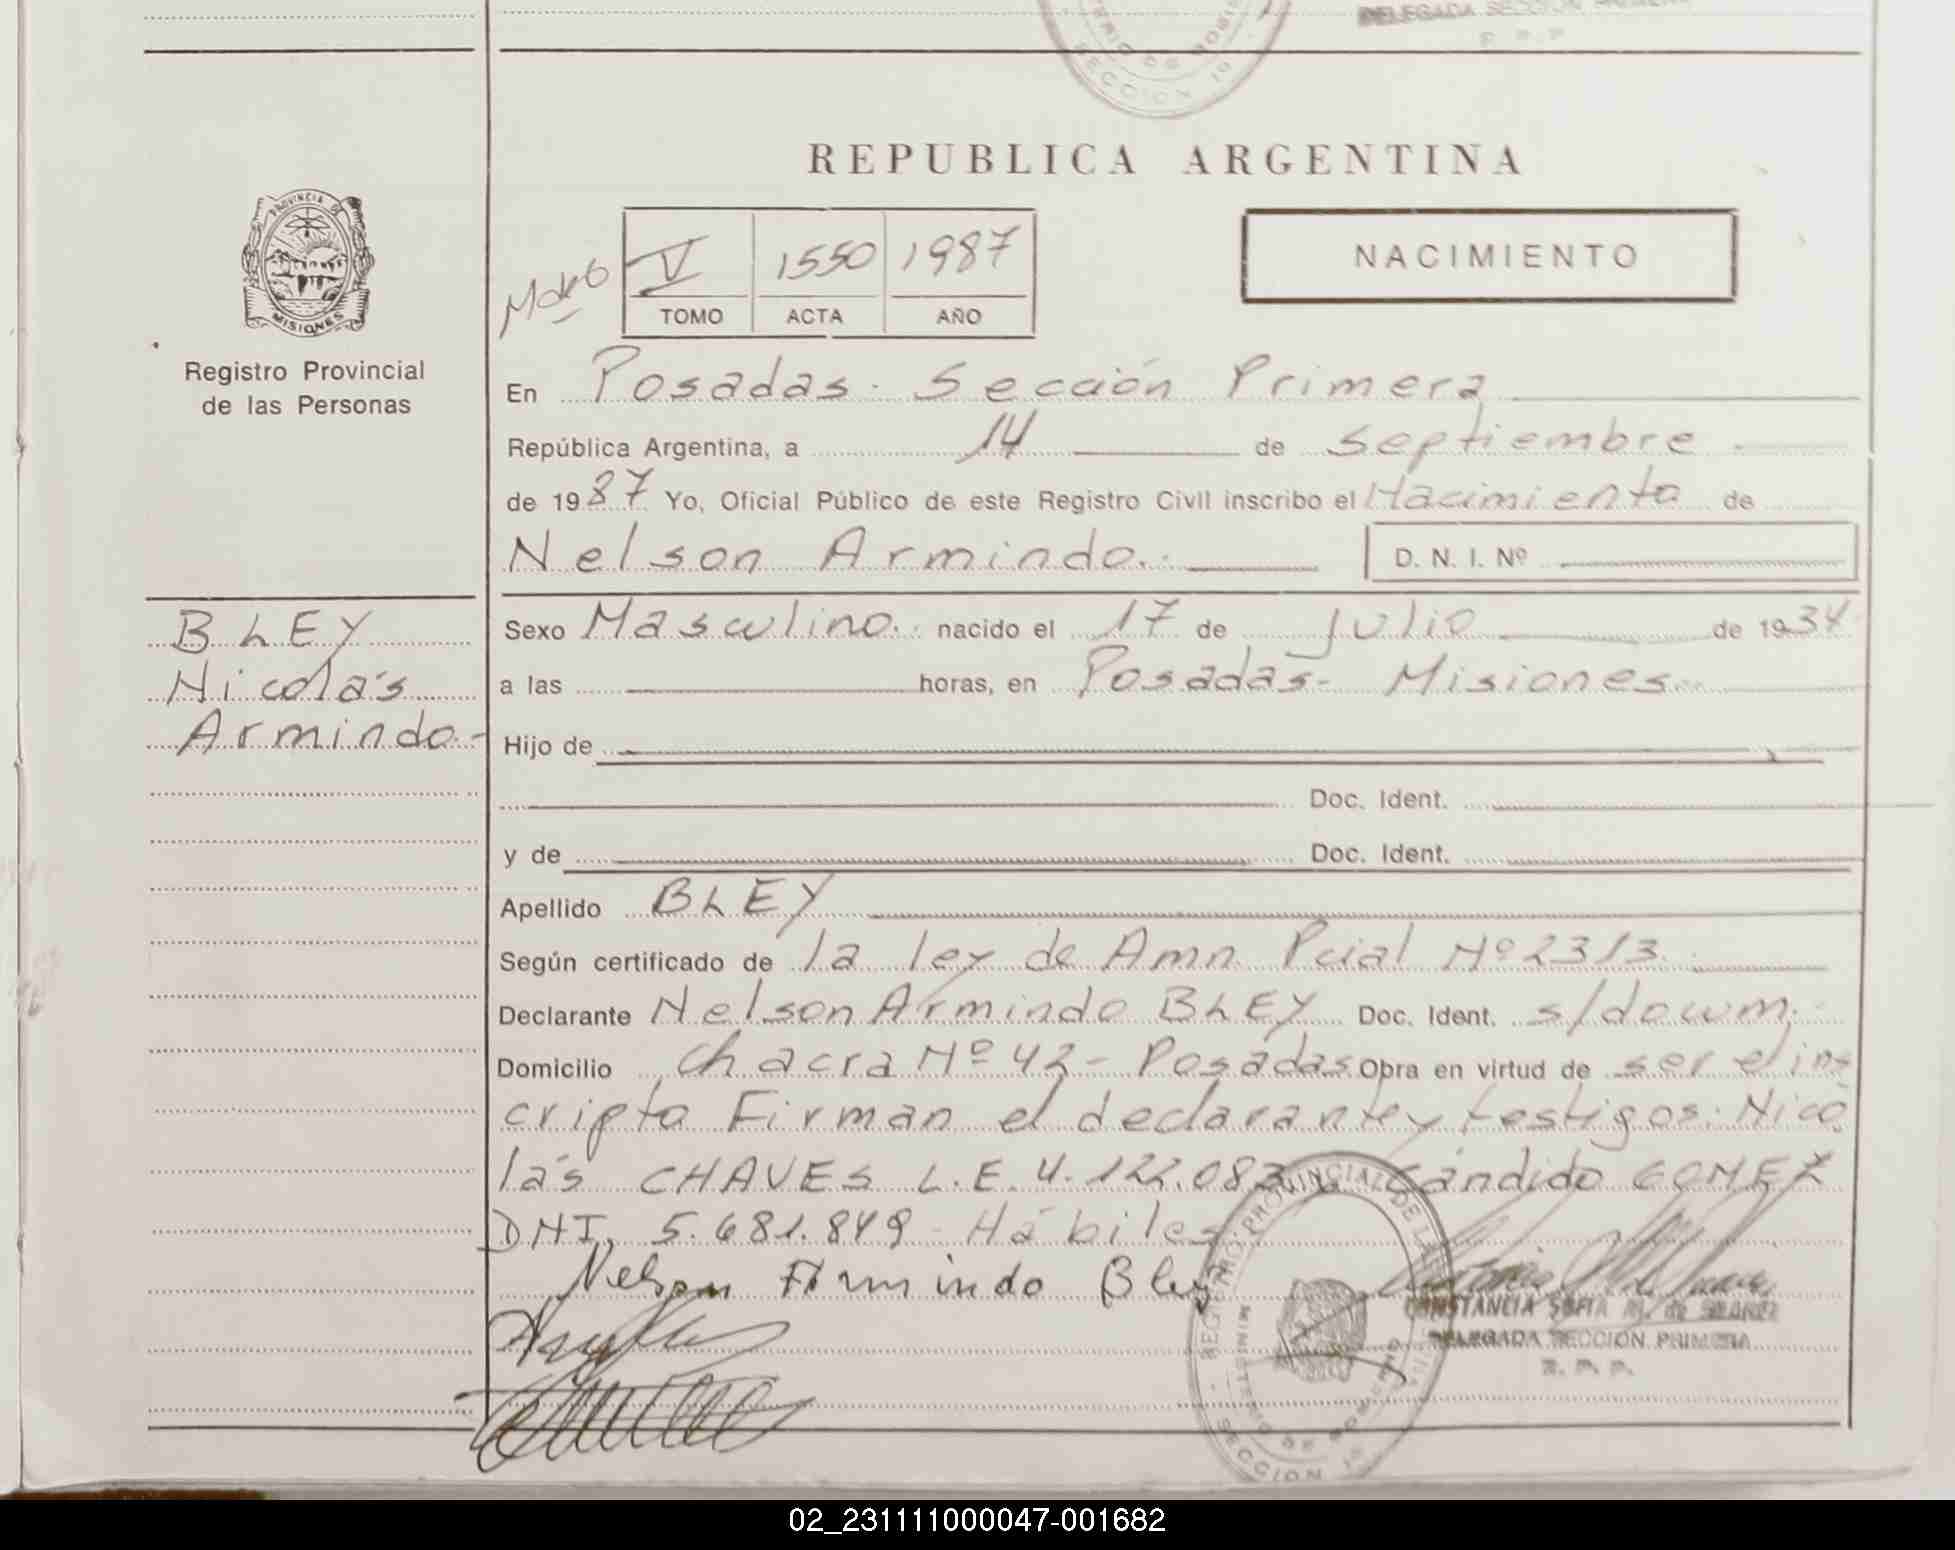 DELEGADA SECCION PRIMERA
R. P. P.
SECCION 1º
REPUBLICA ARGENTINA
PROVINCIA DE
MISIONES
V 1550 1987
TOMO ACTA AÑO
NACIMIENTO
Registro Provincial
de las Personas
En Posadas. Sección Primera
República Argentina, a 14 de Septiembre
de 1987 Yo, Oficial Público de este Registro Civil inscribo el Nacimiento de
Nelson Armindo. D. N. I. Nº
BLEY
Nicolás
Armindo.-
Sexo Masculino. nacido el 17 de Julio de 1934
a las horas, en Posadas- Misiones.
Hijo de
Doc. Ident.
y de Doc. Ident.
Apellido BLEY
Según certificado de la ley de Amn. Pcial Nº 2313.
Declarante Nelson Armindo BLEY Doc. Ident. s/docum.
Domicilio Chacra Nº 42- Posadas Obra en virtud de ser el ins
cripto Firman el declarante y testigos: Nico
lás CHAVES L.E. 4.122.083 Cándido GOMEZ
DNI. 5.681.849 - Hábiles
Nelson Armindo Bley
CONSTANCIA SOFIA M. de SUAREZ
DELEGADA SECCION PRIMERA
R. P. P.
REGISTRO PROVINCIAL DE LAS
MINISTERIO DE GOBIERNO
SECCION 1º
02_231111000047-001682